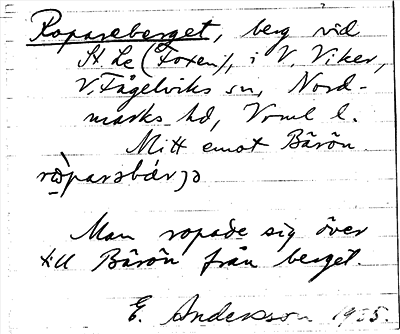 Ropareberget, berg vid
St. Le (Foxen), i V. Viker,
V. Fågelviks sn, Nord-
marks hd, Vrml l.
Mitt emot Bärön
Man ropade sig över
till Bärön från berget.
E. Andersson 1935.